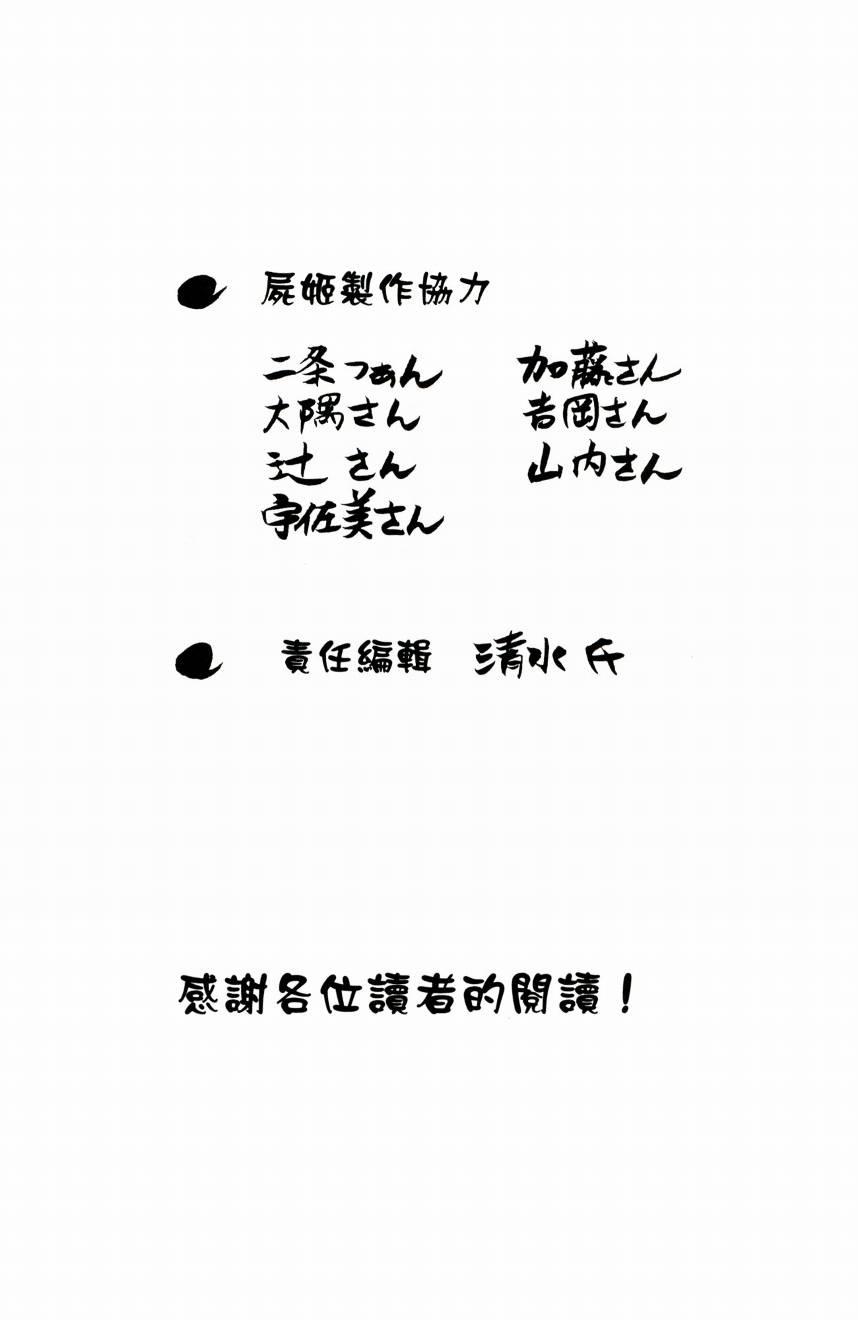 ● 屍姬製作協力
二条つぁん 加藤さん
大隅さん 吉岡さん
辻さん 山内さん
宇佐美さん
● 責任編輯 清水氏
感謝各位讀者的閱讀！